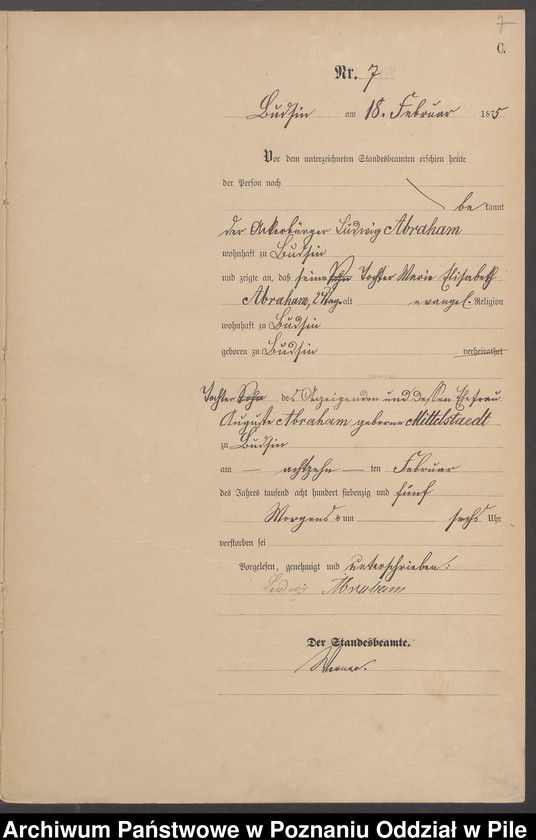 7
C.
Nr. 7
Budsin am 18. Februar 1875
Vor dem unterzeichneten Standesbeamten erschien heute
der Person nach
be kannt
der Ackerbürger Ludwig Abraham
wohnhaft zu Budsin
und zeigte an, daß seine Sohn Tochter Marie Elisabeth
Abraham, 2 Tage alt evangel. Religion
wohnhaft zu Budsin
geboren zu Budsin verheirathet
Tochter Sohn des Anzeigenden und dessen Ehefrau
Auguste Abraham geborne Mittelstaedt
zu Budsin
am — achtzehn — ten Februar
des Jahrs tausend acht hundert siebenzig und fünf
Morgens um sechs Uhr
verstorben sei
Vorgelesen, genehmigt und unterschrieben:
Ludwig Abraham
Der Standesbeamte.
Archiwum Państwowe w Poznaniu Oddział w Pile